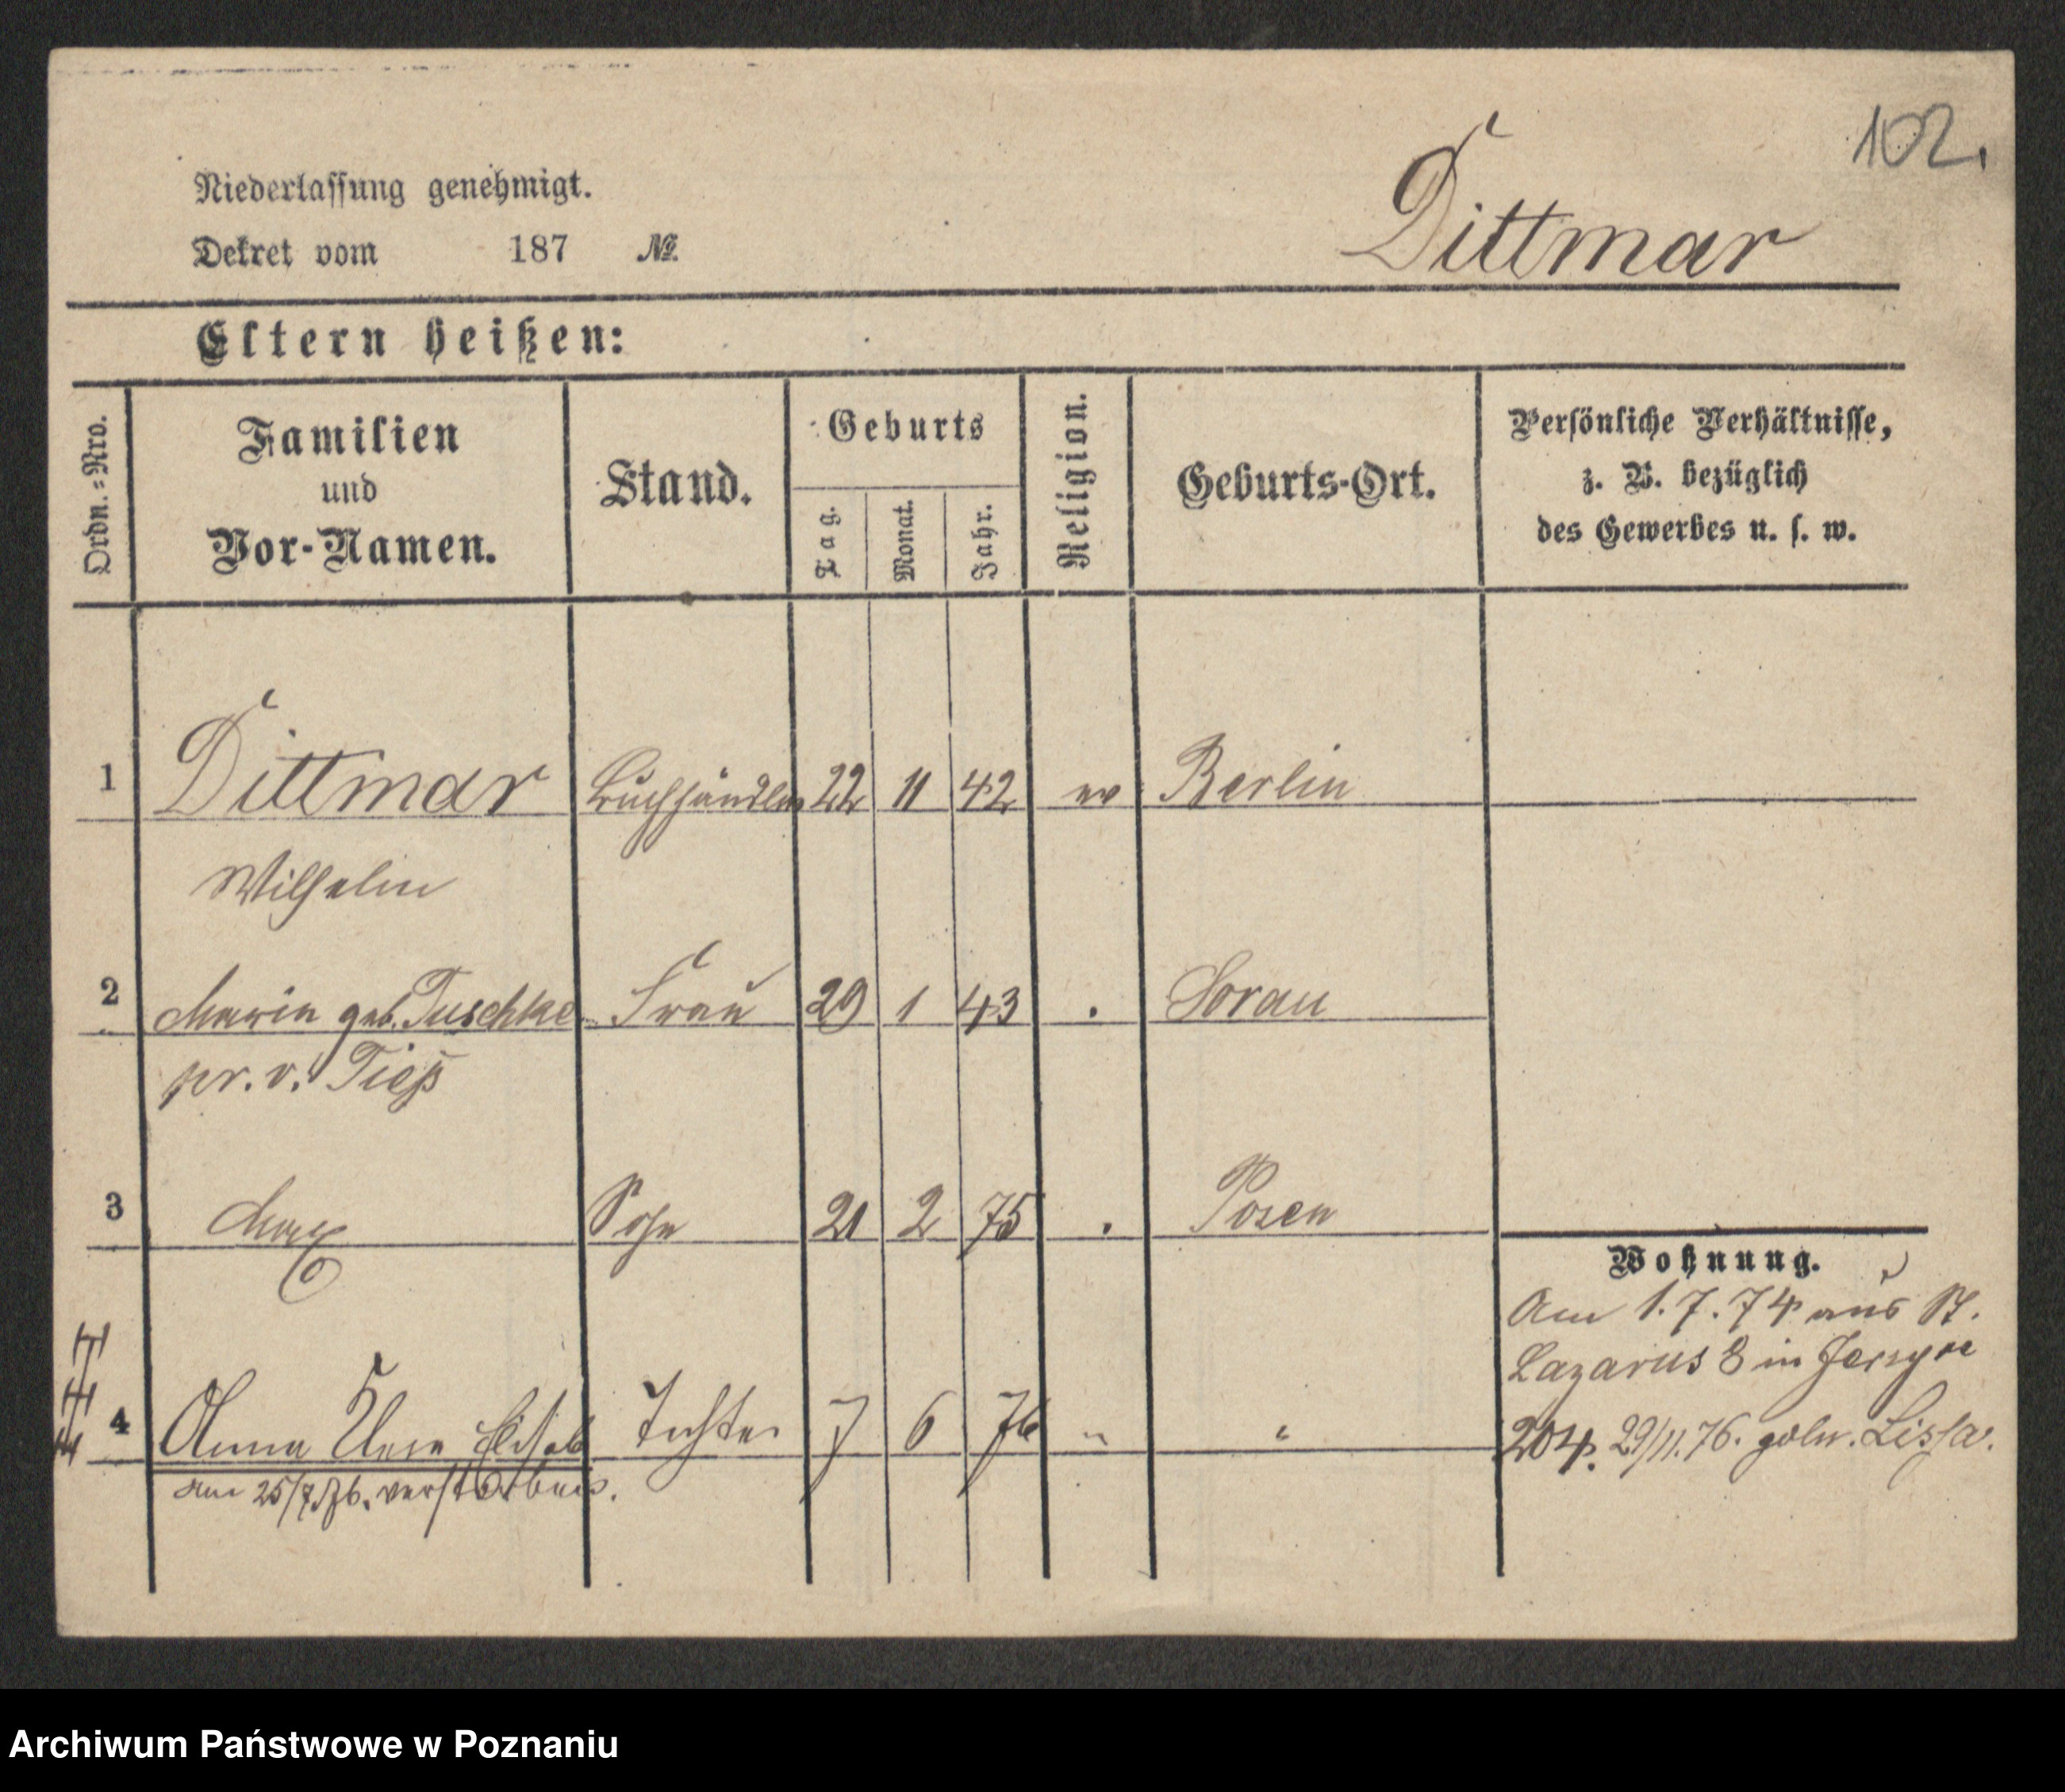 102.
Niederlassung genehmigt.
Dittmar
Dekret vom 187 No.
Eltern heißen:
Ordn.=Nro.
Familien
und
Vor-Namen.
Stand.
Geburts
Tag.
Monat.
Jahr.
Religion.
Geburts-Ort.
Persönliche Verhältnisse,
z. B. bezüglich
des Gewerbes u. s. w.
1 Dittmar Buchhändler 22 11 42 ev Berlin
Wilhelm
2 Maria geb. Tuschke Frau 29 1 43 . Sorau
pr. v. Tietz
3 Max Sohn 21 2 75 . Posen
Wohnung.
Am 1.7.74 aus St.
Lazarus 8 in Jersyce
4 Anna Clara Elisab Tochter 7 6 76 " "
204. 29/11.76. Lissa.
am 25/7.76. verstorben.
Archiwum Państwowe w Poznaniu